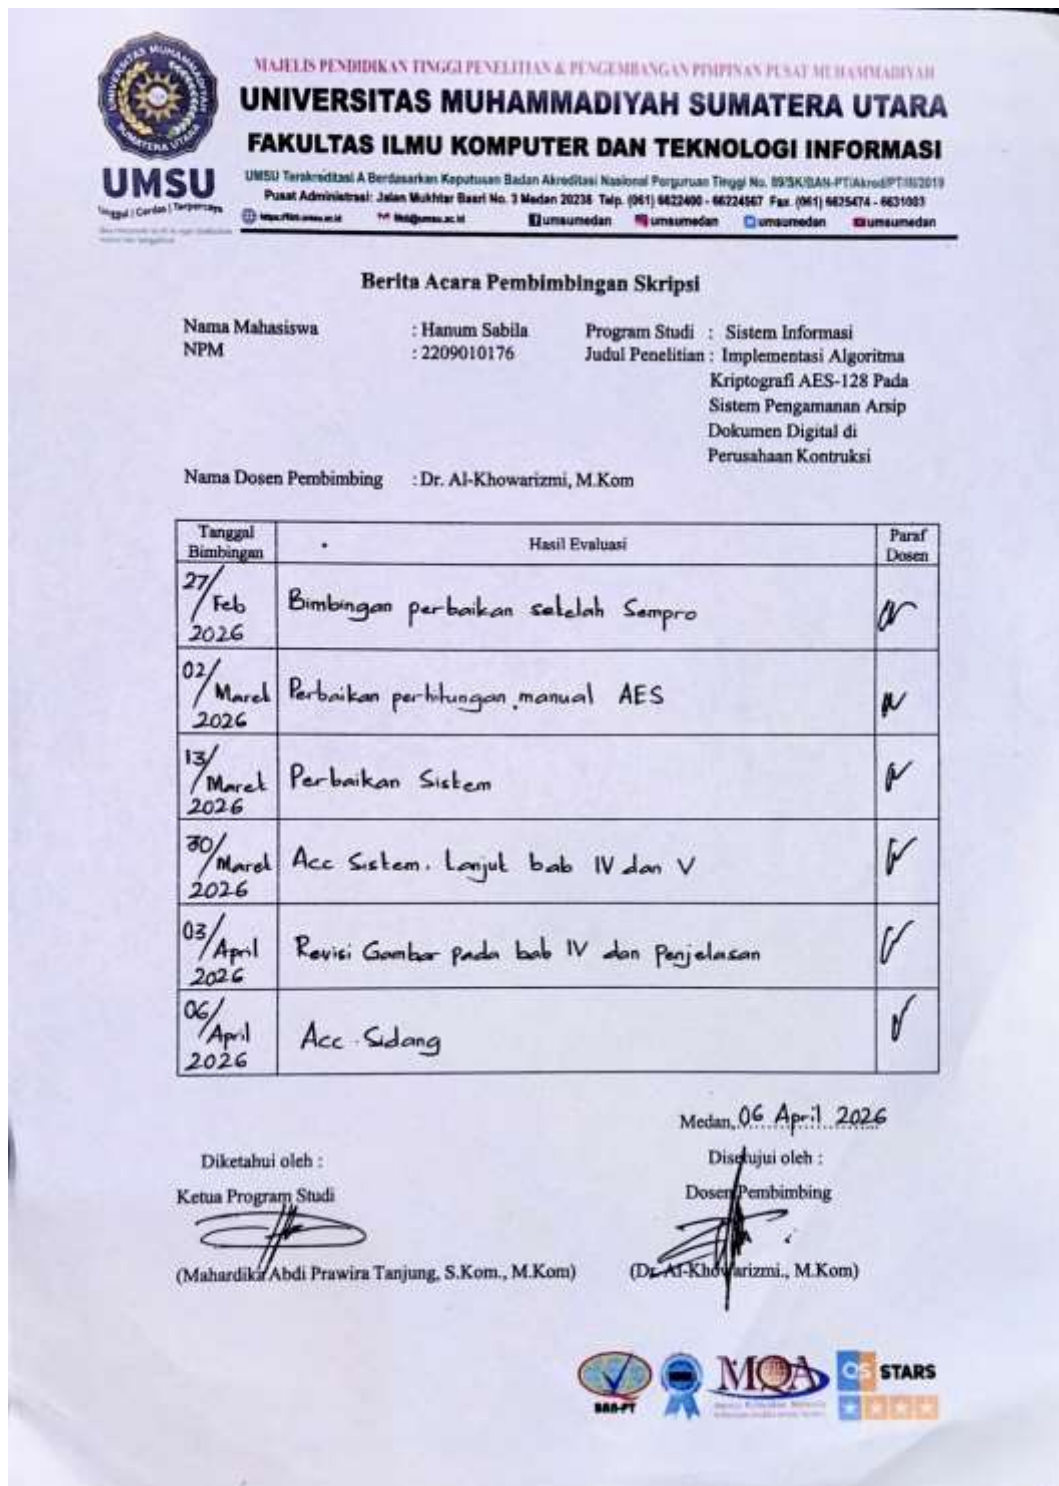 MAJELIS PENDIDIKAN TINGGI PENELITIAN & PENGEMBANGAN PIMPINAN PUSAT MUHAMMADIYAH
UNIVERSITAS MUHAMMADIYAH SUMATERA UTARA
FAKULTAS ILMU KOMPUTER DAN TEKNOLOGI INFORMASI
UMSU Terakreditasi A Berdasarkan Keputusan Badan Akreditasi Nasional Perguruan Tinggi No. 89/SK/BAN-PT/Akred/PT/III/2019
Pusat Administrasi: Jalan Mukhtar Basri No. 3 Medan 20238 Telp. (061) 6622400 - 66224567 Fax. (061) 6625474 - 6631003
umsumedan umsumedan umsumedan umsumedan
UMSU
Unggul | Cerdas | Terpercaya
Berita Acara Pembimbingan Skripsi
Nama Mahasiswa : Hanum Sabila Program Studi : Sistem Informasi
NPM : 2209010176 Judul Penelitian : Implementasi Algoritma
Kriptografi AES-128 Pada
Sistem Pengamanan Arsip
Dokumen Digital di
Perusahaan Kontruksi
Nama Dosen Pembimbing : Dr. Al-Khowarizmi, M.Kom
Tanggal Bimbingan Hasil Evaluasi Paraf Dosen
27/Feb 2026 Bimbingan perbaikan setelah Sempro
02/Maret 2026 Perbaikan perhitungan manual AES
13/Maret 2026 Perbaikan Sistem
30/Maret 2026 Acc Sistem. Lanjut bab IV dan V
03/April 2026 Revisi Gambar pada bab IV dan Penjelasan
06/April 2026 Acc Sidang
Medan, 06 April 2026
Diketahui oleh : Disetujui oleh :
Ketua Program Studi Dosen Pembimbing
(Mahardika Abdi Prawira Tanjung, S.Kom., M.Kom) (Dr. Al-Khowarizmi., M.Kom)
BAN-PT MQA QS STARS